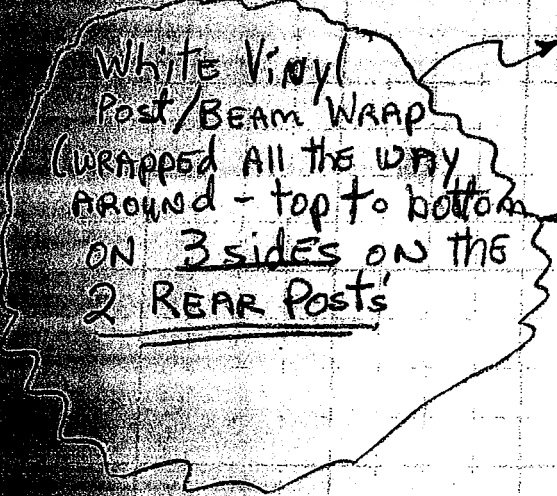 White Vinyl
Post/BEAM WRAP
(WRAPPED All the WAY
AROUNd - top to bottom
ON 3 sides ON the
2 REAR Posts